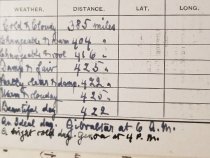 WEATHER. DISTANCE. LAT. LONG.
Cold & Cloudy 385 miles
Changeable & warm 404 "
Changeable & cool 416 "
Damp & Fair 425 "
clear & damp 422 "
Warm & cloudy 425 "
Beautiful day 422
An Ideal day. Gibraltar at 6 A.M.
A right cold day Genoa at 4 P.M.